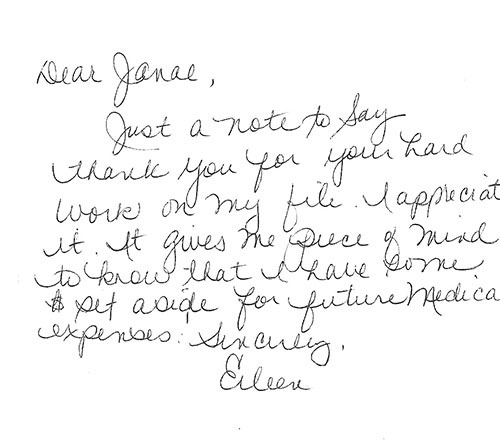 Dear Janae,
Just a note to say
thank you for your hard
work on my file. I appreciat
it. It gives me piece of mind
to know that I have some
$ set aside for future Medica
expenses. Sincerely,
Eileen